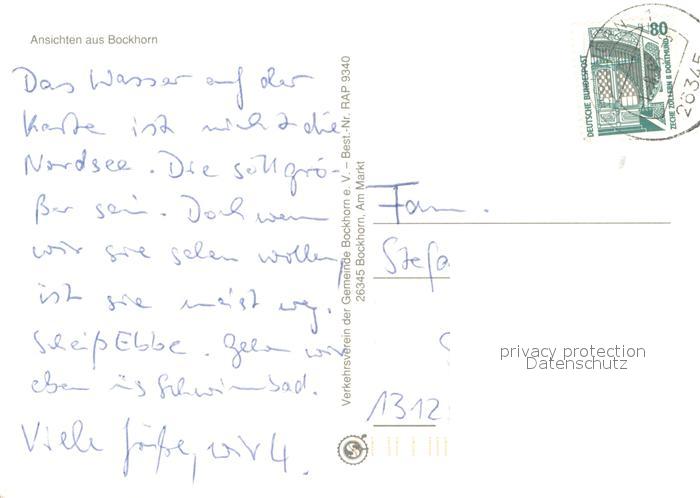 Ansichten aus Bockhorn
Das Wasser auf der
Karte ist nicht die
Nordsee. Die soll grö-
ßer sein. Doch wenn
wir sie sehen wollen,
ist sie meist weg.
Scheiß Ebbe. Gehen wir
eben ins Schwimmbad.
Viele Grüße, wir 4.
Verkehrsverein der Gemeinde Bockhorn e. V. – Best.-Nr. RAP 9340
26345 Bockhorn, Am Markt
80
DEUTSCHE BUNDESPOST
ZECHE ZOLLERN II DORTMUND
26345
Fam.
Stefa
1312
privacy protection
Datenschutz